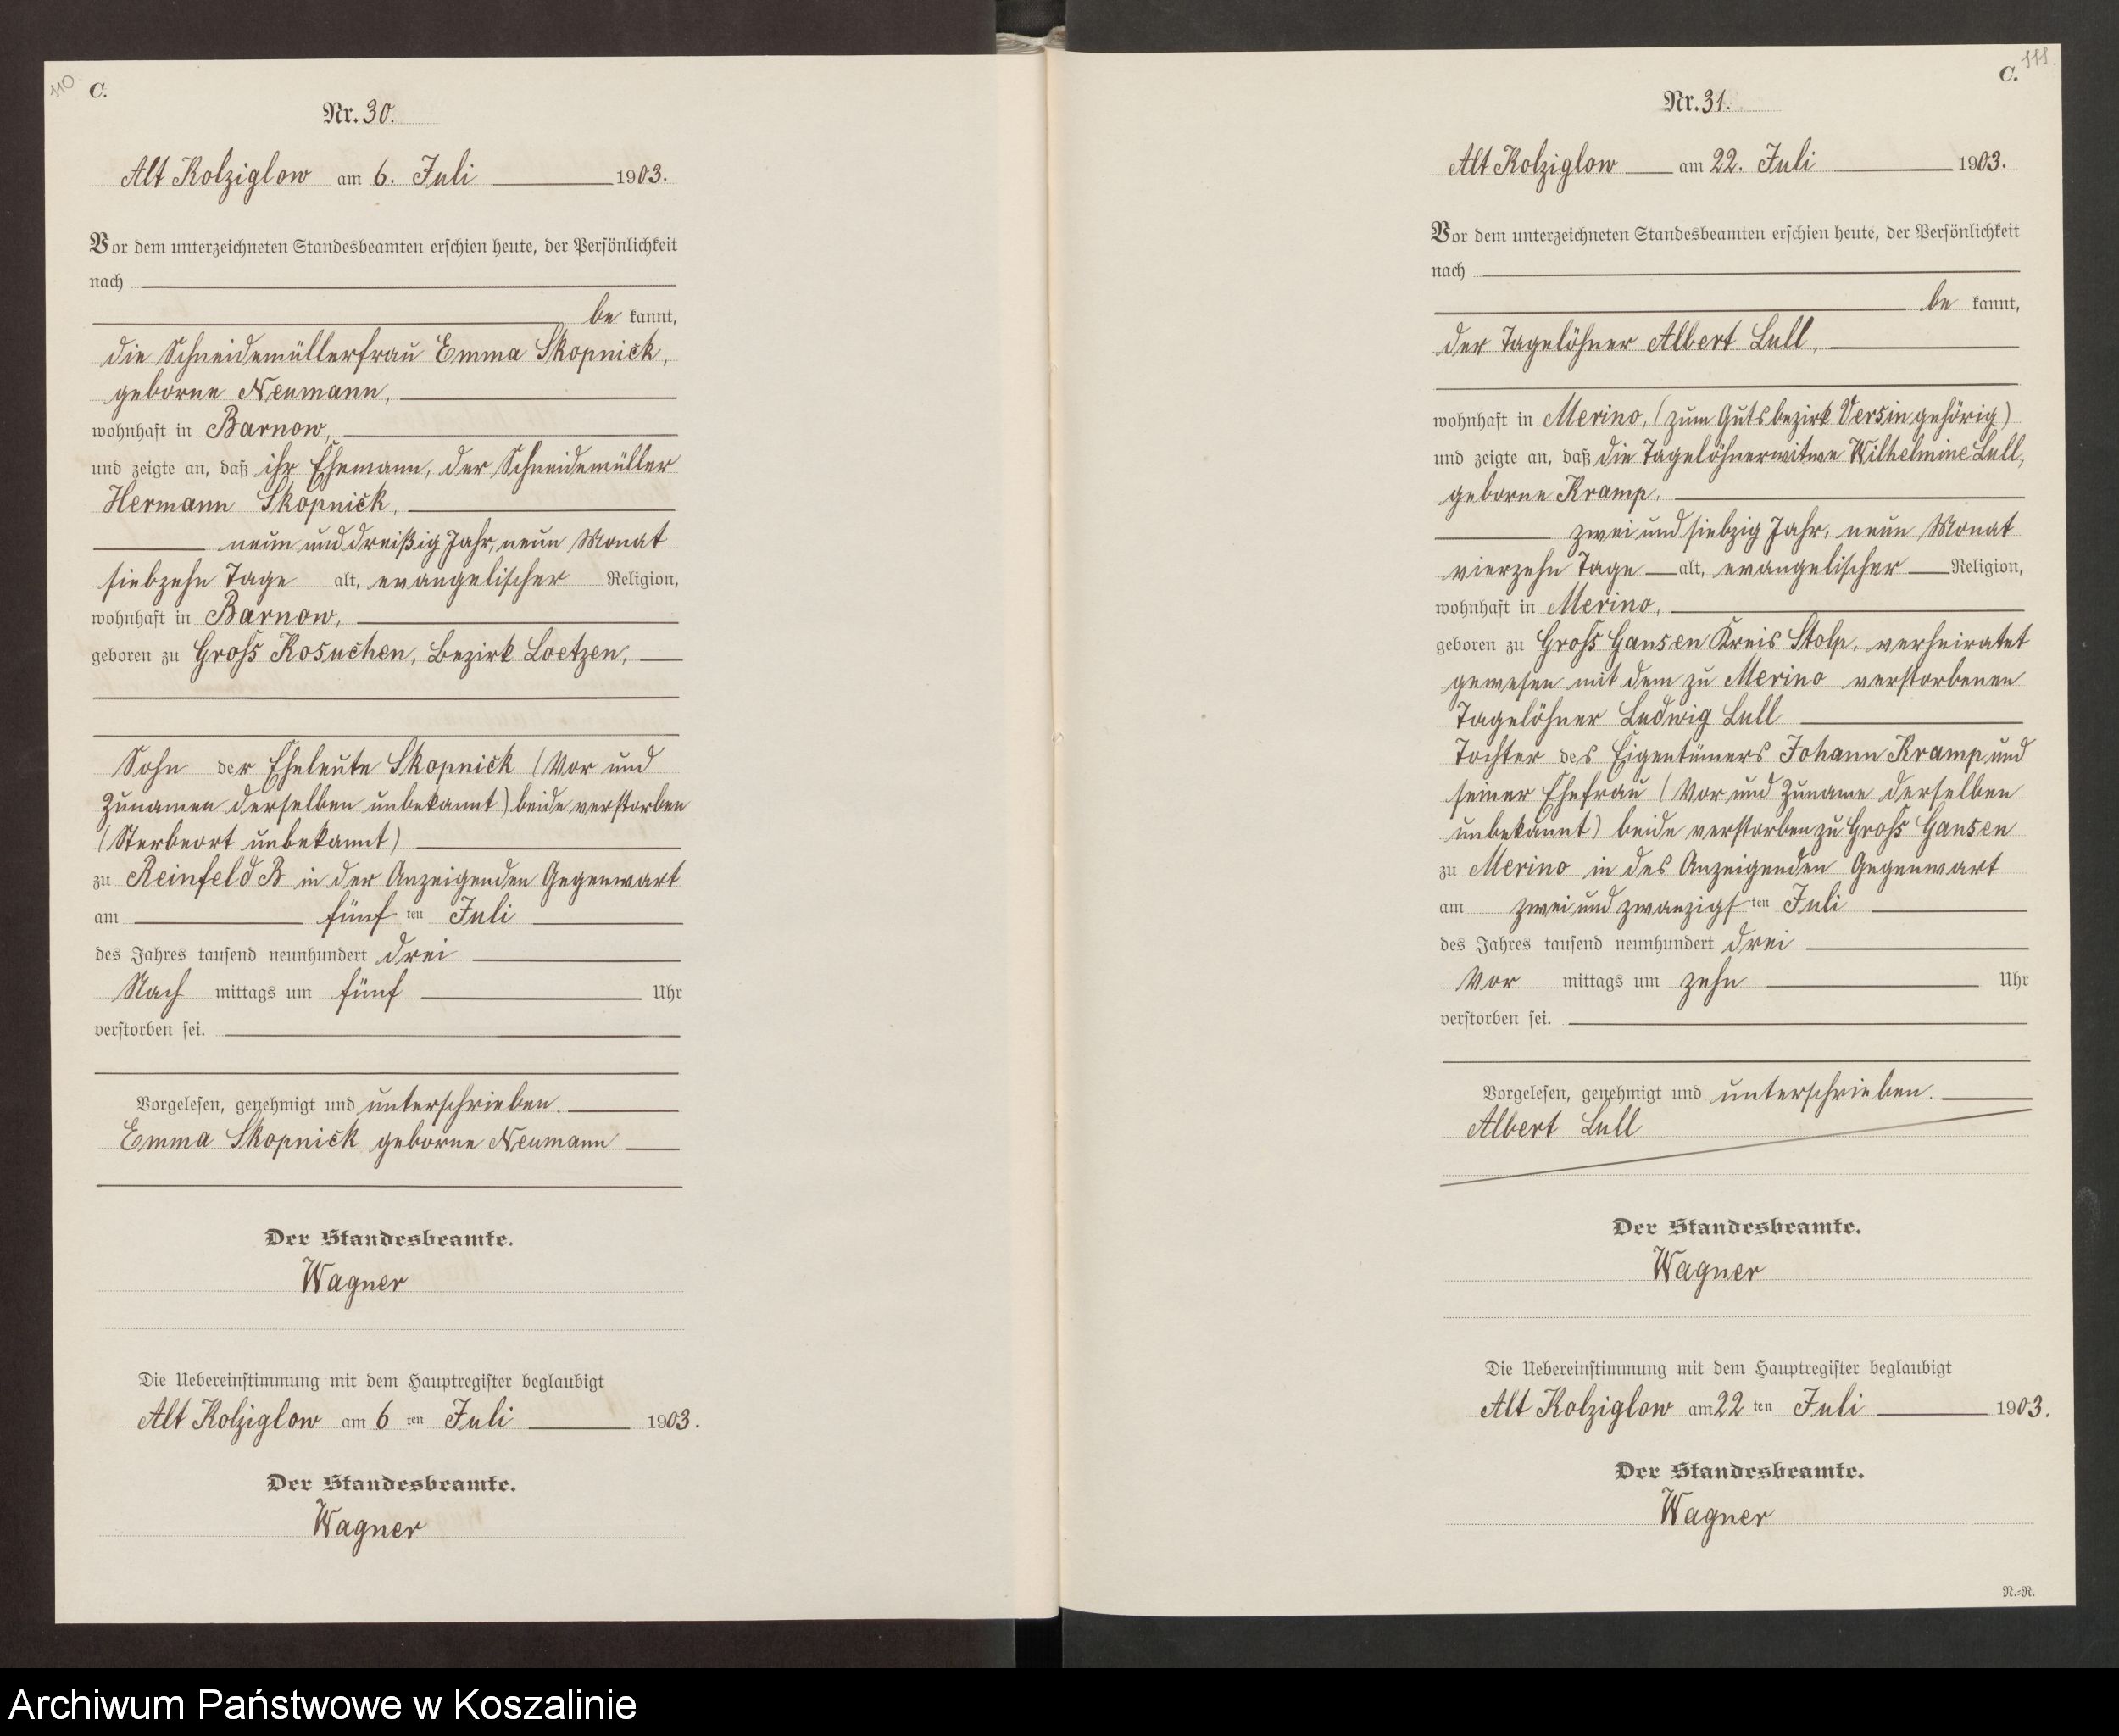 110
C.
Nr. 30.
Alt Kolziglow am 6. Juli 1903.
Vor dem unterzeichneten Standesbeamten erschien heute, der Persönlichkeit
nach
be kannt,
die Schneidemüllerfrau Emma Skopnick,
geborne Neumann,
wohnhaft in Barnow,
und zeigte an, daß ihr Ehemann, der Schneidemüller
Hermann Skopnick,
neun und dreißig Jahr, neun Monat
siebzehn Tage alt, evangelischer Religion,
wohnhaft in Barnow,
geboren zu Groß Kosuchen, Bezirk Loetzen,
Sohn der Eheleute Skopnick (Vor und
Zunamen derselben unbekannt) beide verstorben
(Sterbeort unbekannt)
zu Reinfeld B in der Anzeigenden Gegenwart
am fünf ten Juli
des Jahres tausend neunhundert drei
Nach mittags um fünf Uhr
verstorben sei.
Vorgelesen, genehmigt und unterschrieben.
Emma Skopnick geborne Neumann
Der Standesbeamte.
Wagner
Die Uebereinstimmung mit dem Hauptregister beglaubigt
Alt Kolziglow am 6 ten Juli 1903.
Der Standesbeamte.
Wagner
111.
C.
Nr. 31.
Alt Kolziglow am 22. Juli 1903.
Vor dem unterzeichneten Standesbeamten erschien heute, der Persönlichkeit
nach
be kannt,
der Tagelöhner Albert Lull,
wohnhaft in Merino, (zum Gutsbezirk Versin gehörig)
und zeigte an, daß die Tagelöhnerwitwe Wilhelmine Lull,
geborne Kramp,
zwei und siebzig Jahr, neun Monat
vierzehn Tage alt, evangelischer Religion,
wohnhaft in Merino,
geboren zu Groß Gansen Kreis Stolp, verheiratet
gewesen mit dem zu Merino verstorbenen
Tagelöhner Ludwig Lull
Tochter des Eigentümers Johann Kramp und
seiner Ehefrau (Vor und Zuname derselben
unbekannt) beide verstorben zu Groß Gansen
zu Merino in des Anzeigenden Gegenwart
am zwei und zwanzigs ten Juli
des Jahres tausend neunhundert drei
Vor mittags um zehn Uhr
verstorben sei.
Vorgelesen, genehmigt und unterschrieben.
Albert Lull
Der Standesbeamte.
Wagner
Die Uebereinstimmung mit dem Hauptregister beglaubigt
Alt Kolziglow am 22 ten Juli 1903.
Der Standesbeamte.
Wagner
N.=R.
Archiwum Państwowe w Koszalinie